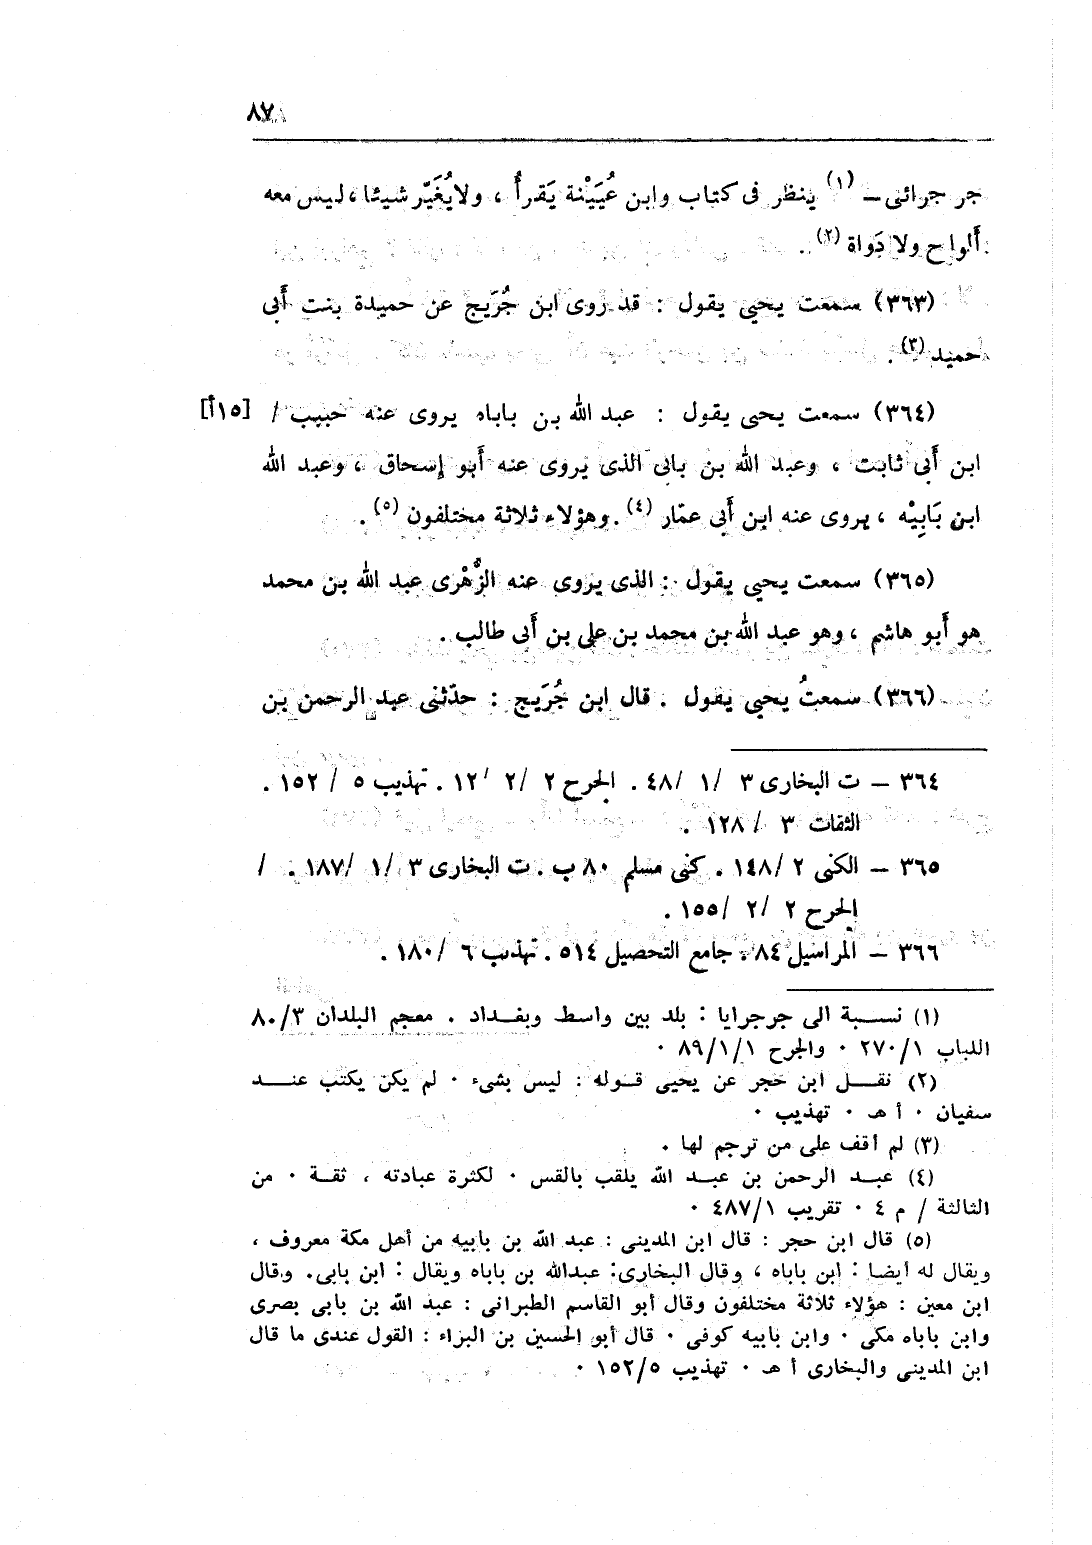 ٨٧
جر جرائى ــ (١) ينظر فى كتاب وابن عُيَيْنة يَقرأُ ، ولايُغَيّر شيئا ، ليس معه
أَلواح ولا دَواة (٢) .
(٣٦٣) سمعت يحيى يقول : قد روى ابن جُرَيج عن حميدة بنت أَبى
حميد (٣) .
(٣٦٤) سمعت يحيى يقول : عبد الله بن باباه يروى عنه حبيب / [١٥أ]
ابن أَبى ثابت ، وعبد الله بن بابى الذى يروى عنه أَبو إسحاق ، وعبد الله
ابن بَابِيْه ، يروى عنه ابن أَبى عمّار (٤) . وهؤلاء ثلاثة مختلفون (٥) .
(٣٦٥) سمعت يحيى يقول : الذى يروى عنه الزُّهْرى عبد الله بن محمد
هو أَبو هاشم ، وهو عبد الله بن محمد بن على بن أَبى طالب .
(٣٦٦) سمعتُ يحيى يقول . قال ابن جُرَيج : حدّثنى عبد الرحمن بن
٣٦٤ ــ ت البخارى ٣ /١ /٤٨ . الجرح ٢ /٢ /١٢ . تهذيب ٥ / ١٥٢ .
الثقات ٣ /١٢٨ .
٣٦٥ ــ الكنى ٢ /١٤٨ . كنى مسلم ٨٠ ب . ت البخارى ٣ /١ /١٨٧ . /
الجرح ٢ /٢ /١٥٥ .
٣٦٦ ــ المراسيل ٨٤ . جامع التحصيل ٥١٤ . تهذيب ٦ /١٨٠ .
(١) نسبة الى جرجرايا : بلد بين واسط وبغداد . معجم البلدان ٨٠/٣
اللباب ٢٧٠/١ ٠ والجرح ٨٩/١/١ ٠
(٢) نقل ابن حجر عن يحيى قوله : ليس بشىء ٠ لم يكن يكتب عند
سفيان ٠ أ هـ ٠ تهذيب ٠
(٣) لم أقف على من ترجم لها ٠
(٤) عبد الرحمن بن عبد الله يلقب بالقس ٠ لكثرة عبادته ، ثقة ٠ من
الثالثة / م ٤ ٠ تقريب ٤٨٧/١ ٠
(٥) قال ابن حجر : قال ابن المدينى : عبد الله بن بابيه من أهل مكة معروف ،
ويقال له أيضا : ابن باباه ، وقال البخارى: عبدالله بن باباه ويقال : ابن بابى. وقال
ابن معين : هؤلاء ثلاثة مختلفون وقال أبو القاسم الطبرانى : عبد الله بن بابى بصرى
وابن باباه مكى ٠ وابن بابيه كوفى ٠ قال أبو الحسين بن البراء : القول عندى ما قال
ابن المدينى والبخارى أ هـ ٠ تهذيب ١٥٢/٥ ٠